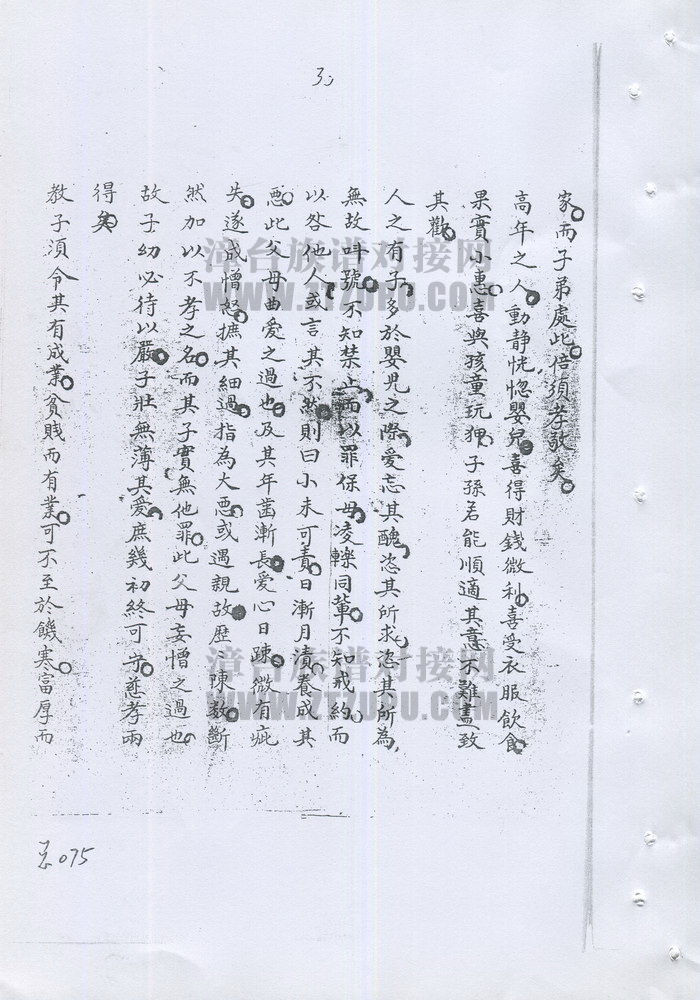 3
家而子弟處此倍須孝敬矣
高年之人動静恍惚嬰兒喜得財錢微利喜受衣服飲食
果實小惠喜與孩童玩狎子孫若能順適其意不難盡致
其歡
人之有子多於嬰児之際愛忘其醜恣其所求恣其所為
無故呌號不知禁止而以罪保母凌轢同軰不知戒約而
以咎他人或言其不然則曰小未可責日漸月漬養成其
惡此父母曲愛之過也及其年茵漸長愛心日踈微有疵
失遂成憎怒摭其細過指為大惡或遇親故歴陳数斷
然加以不孝之名而其子實無他罪此父母妄憎之過也
故子幼必待以嚴子壯無薄其愛庶幾初終可守慈孝兩
得矣
教子須令其有成業貧賤而有業可不至於饑寒富厚而
总075
漳台族谱对接网
WWW.ZTZUPU.COM
漳台族谱对接网
WWW.ZTZUPU.COM